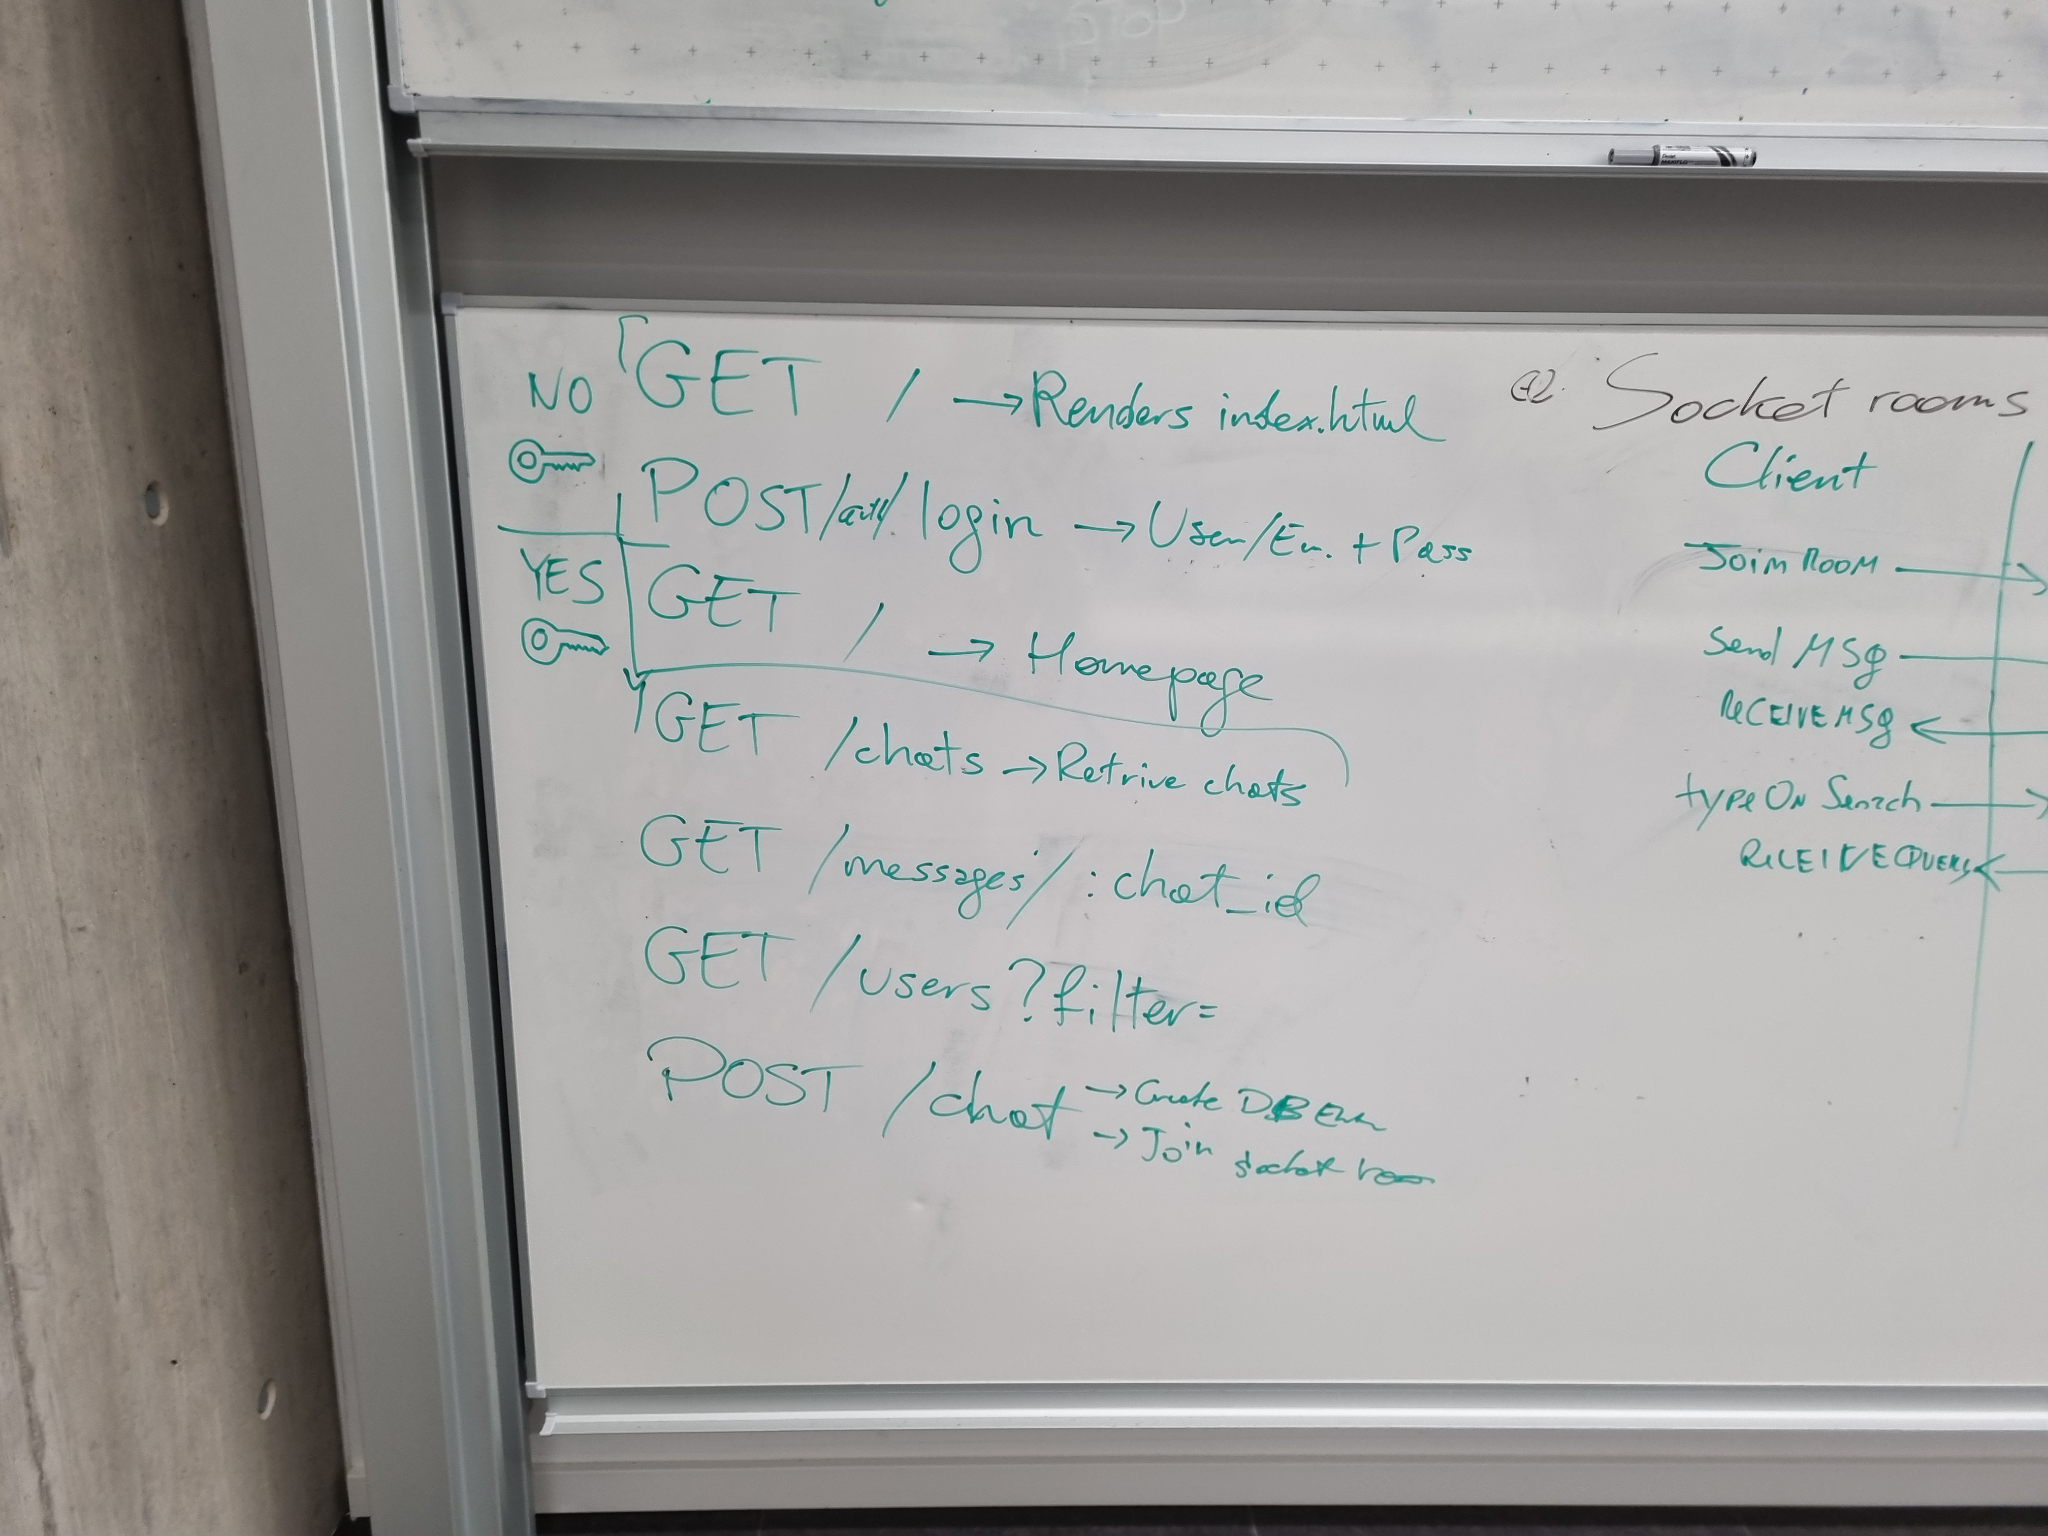 NO
YES
GET / → Renders index.html
POST /auth/ login → User/Em. + Pass
GET / → Homepage
GET /chats → Retrive chats
GET /messages/:chat_id
GET /users?filter=
POST /chat → Create DB
→ Join socket room
Socket rooms
Client
Join ROOM →
Send MSg
RECEIVE MSg ←
type On Search →
RECEIVE ←